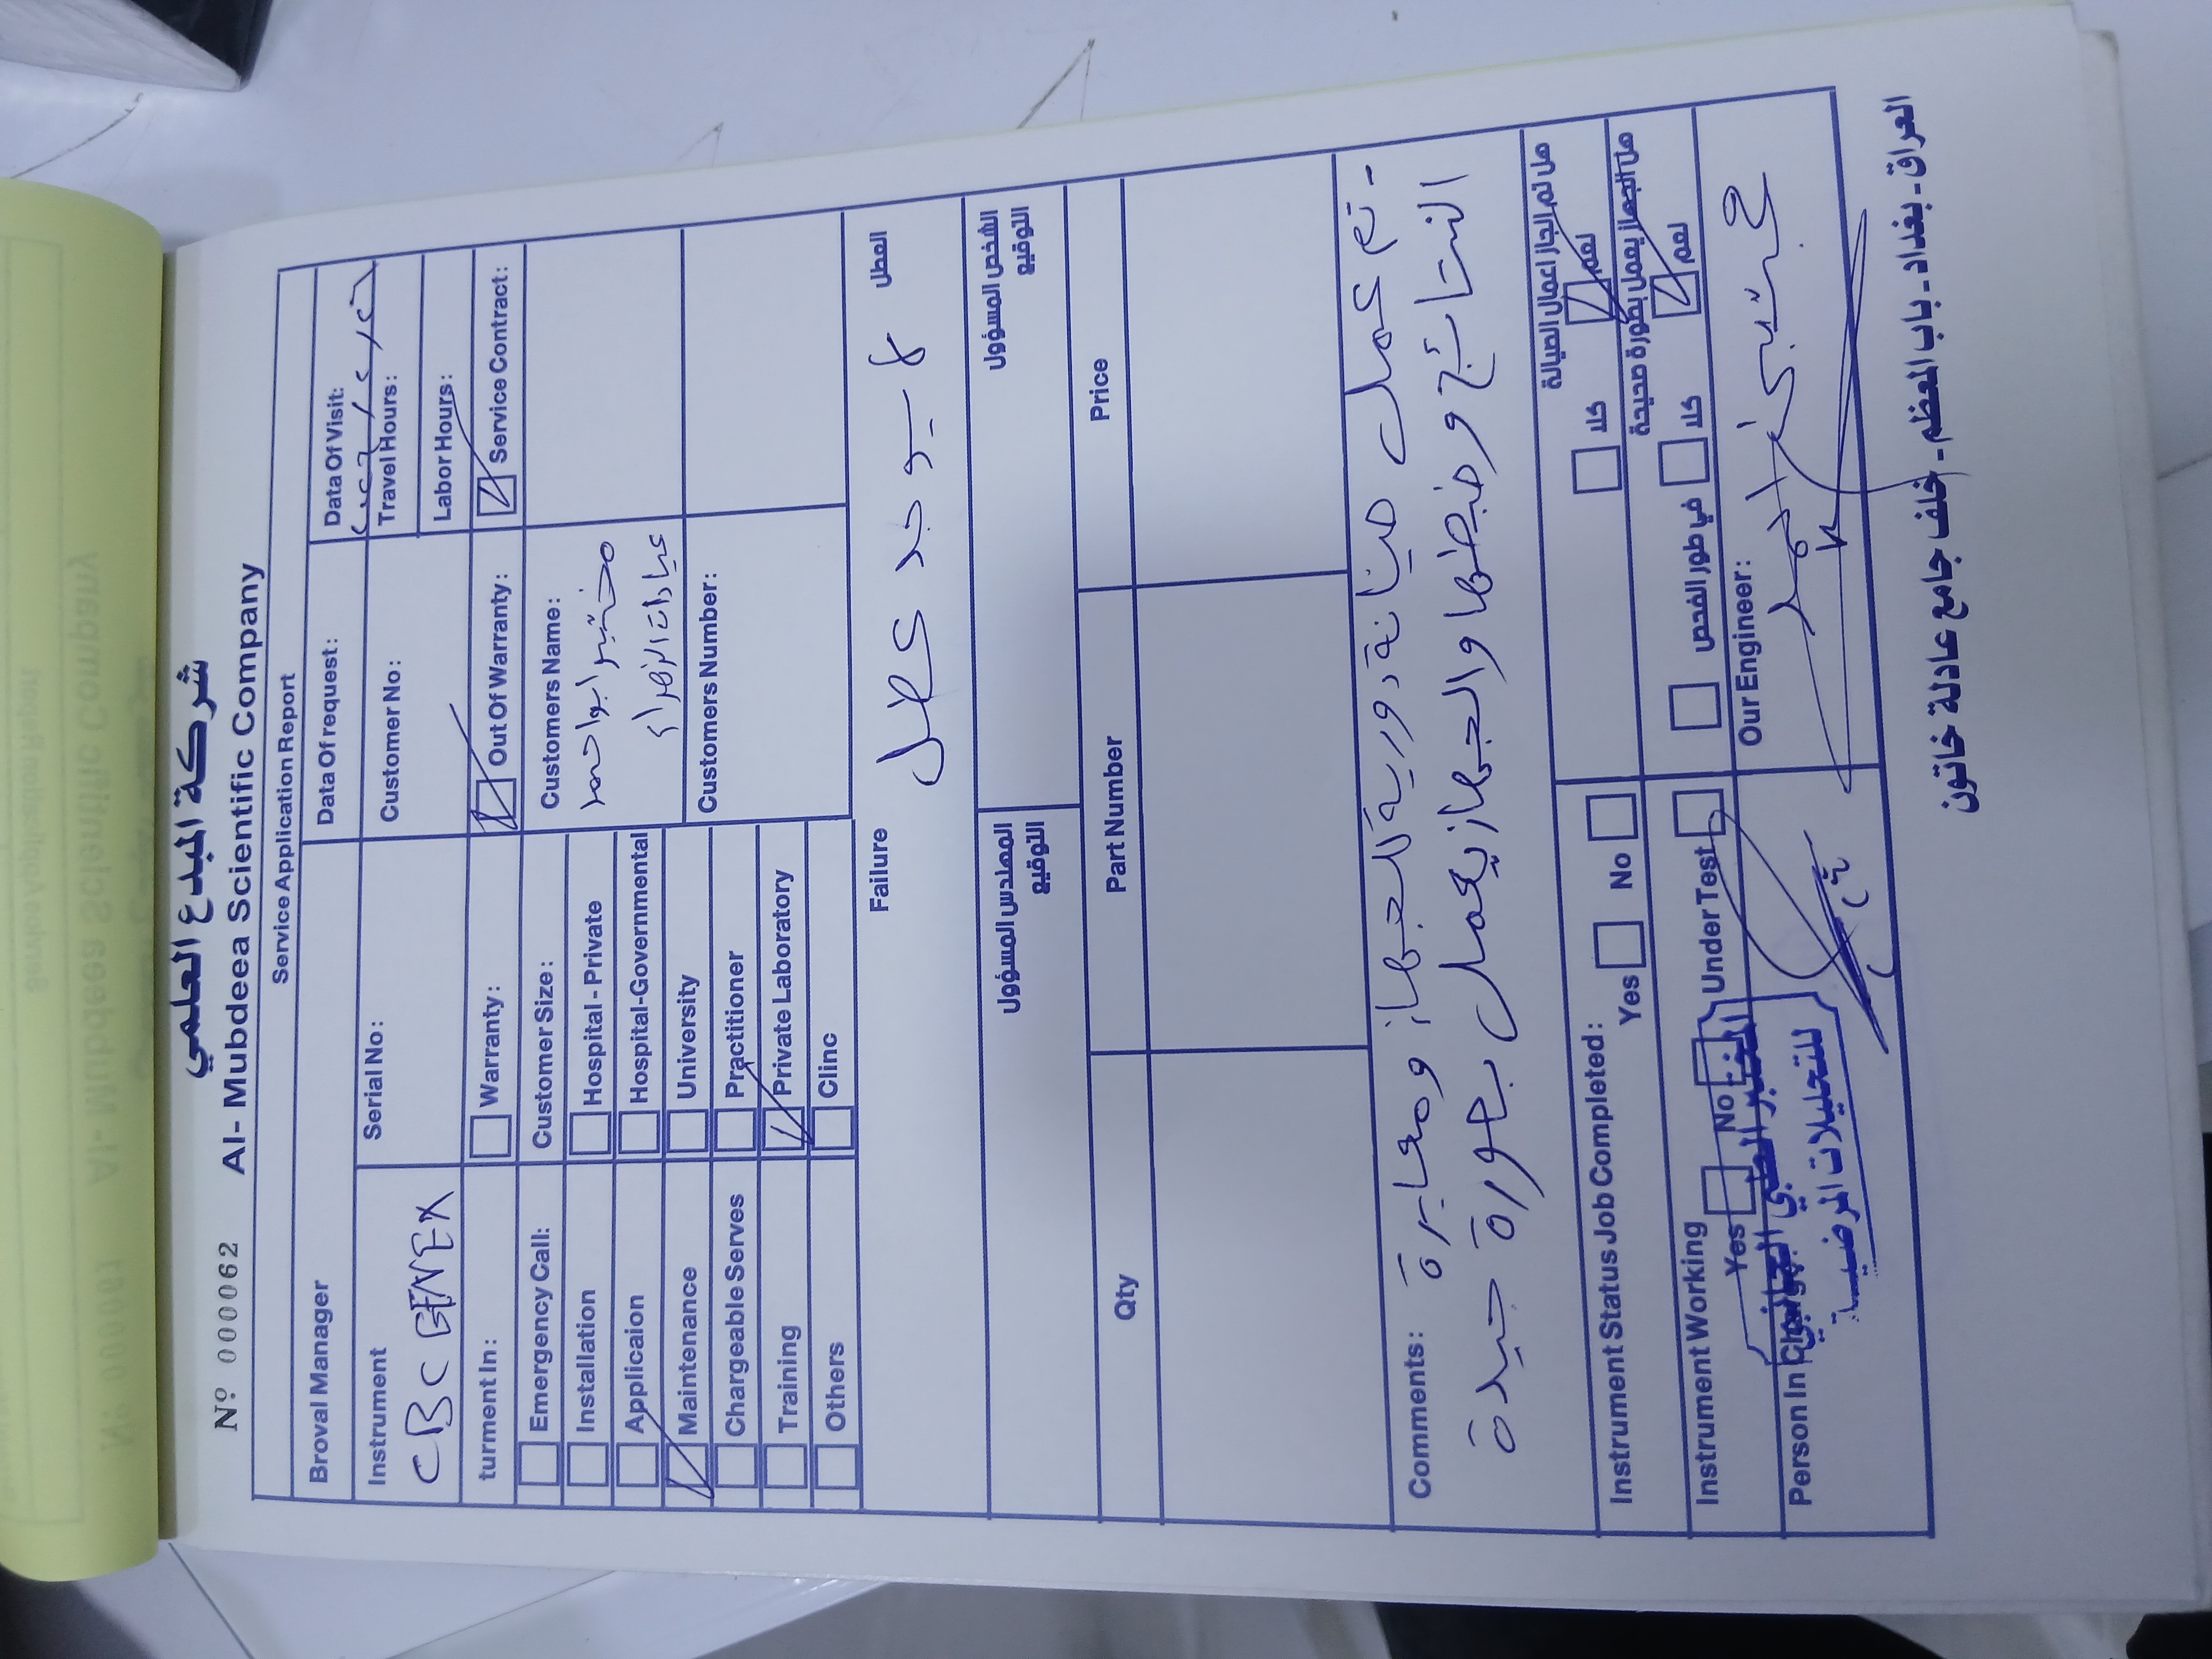 شركة المبدع العلمي
Nº 000062 Al- Mubdeea Scientific Company
Service Application Report
Broval Manager
Data Of request:
Data Of Visit:
Instrument
CBC GENEX
Serial No:
Customer No:
Travel Hours:
Labor Hours:
turment In:
Warranty:
Out Of Warranty:
Service Contract:
Emergency Call:
Installation
Applicaion
Maintenance
Chargeable Serves
Training
Others
Customer Size:
Hospital - Private
Hospital-Governmental
University
Practitioner
Private Laboratory
Clinc
Customers Name:
مختبر ابو احمد
عيادات الزهراء
Customers Number:
Failure
العطل
لا يوجد عطل
المهندس المسؤول
التوقيع
الشخص المسؤول
التوقيع
Qty Part Number Price
Comments:
- تم عمل صيانة دورية للجهاز ومعايرة
النتائج وضبطها والجهاز يعمل بصورة جيدة
Instrument Status Job Completed:
Yes No
هل تم انجاز اعمال الصيانة
كلا نعم
Instrument Working
Yes No Under Test
هل الجهاز يعمل بصورة صحيحة
في طور الفحص كلا نعم
Person In Charge
المختبر الطبي
للتحليلات المرضية
Our Engineer:
العراق - بغداد - باب المعظم - خلف جامع عادلة خاتون